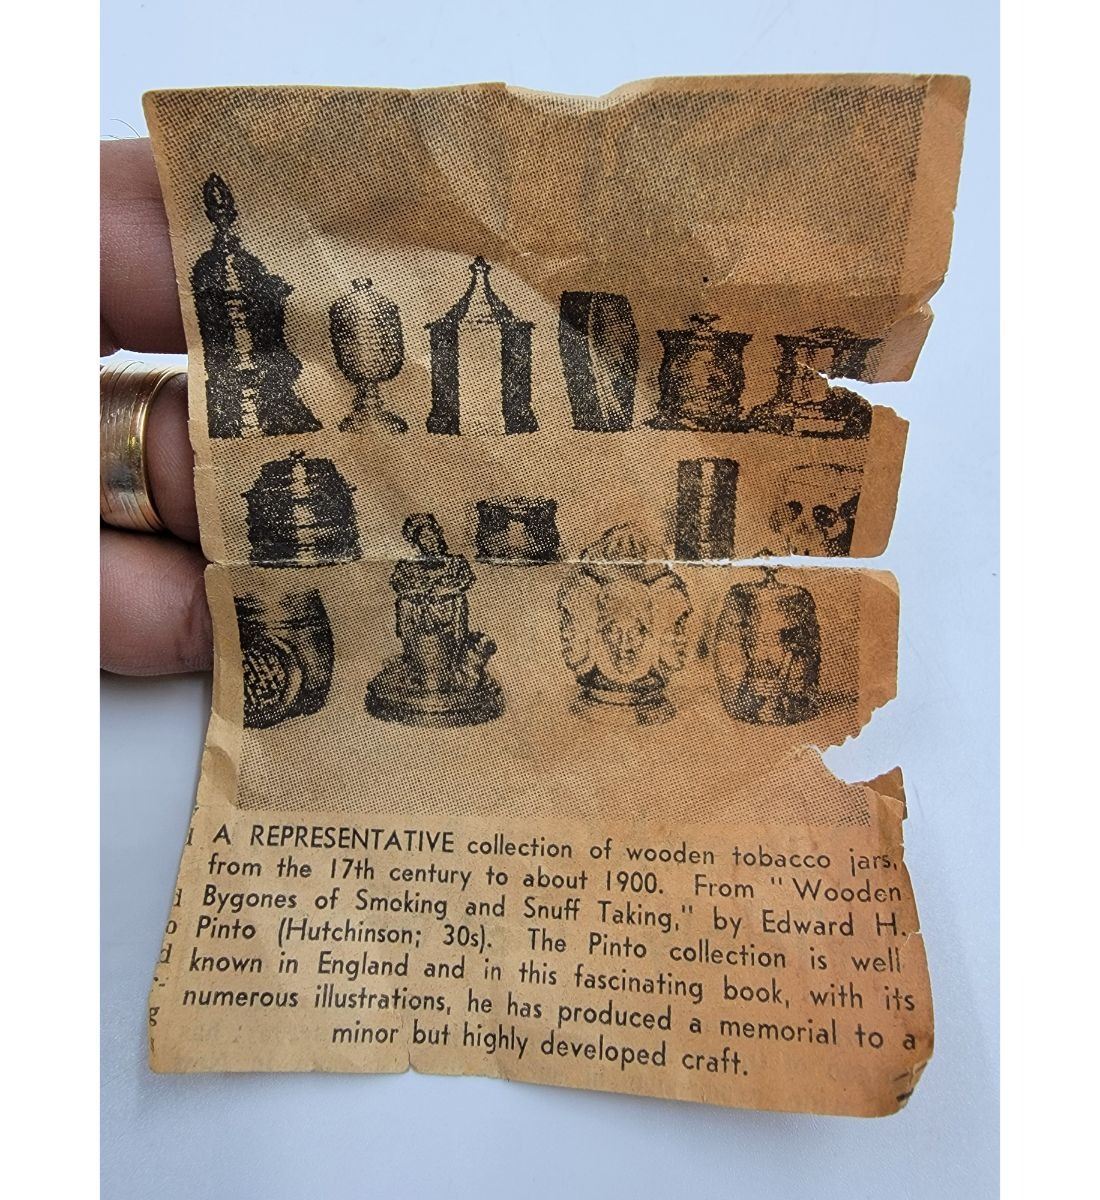 A REPRESENTATIVE collection of wooden tobacco jars,
from the 17th century to about 1900. From "Wooden
Bygones of Smoking and Snuff Taking," by Edward H.
Pinto (Hutchinson; 30s). The Pinto collection is well
known in England and in this fascinating book, with its
numerous illustrations, he has produced a memorial to a
minor but highly developed craft.